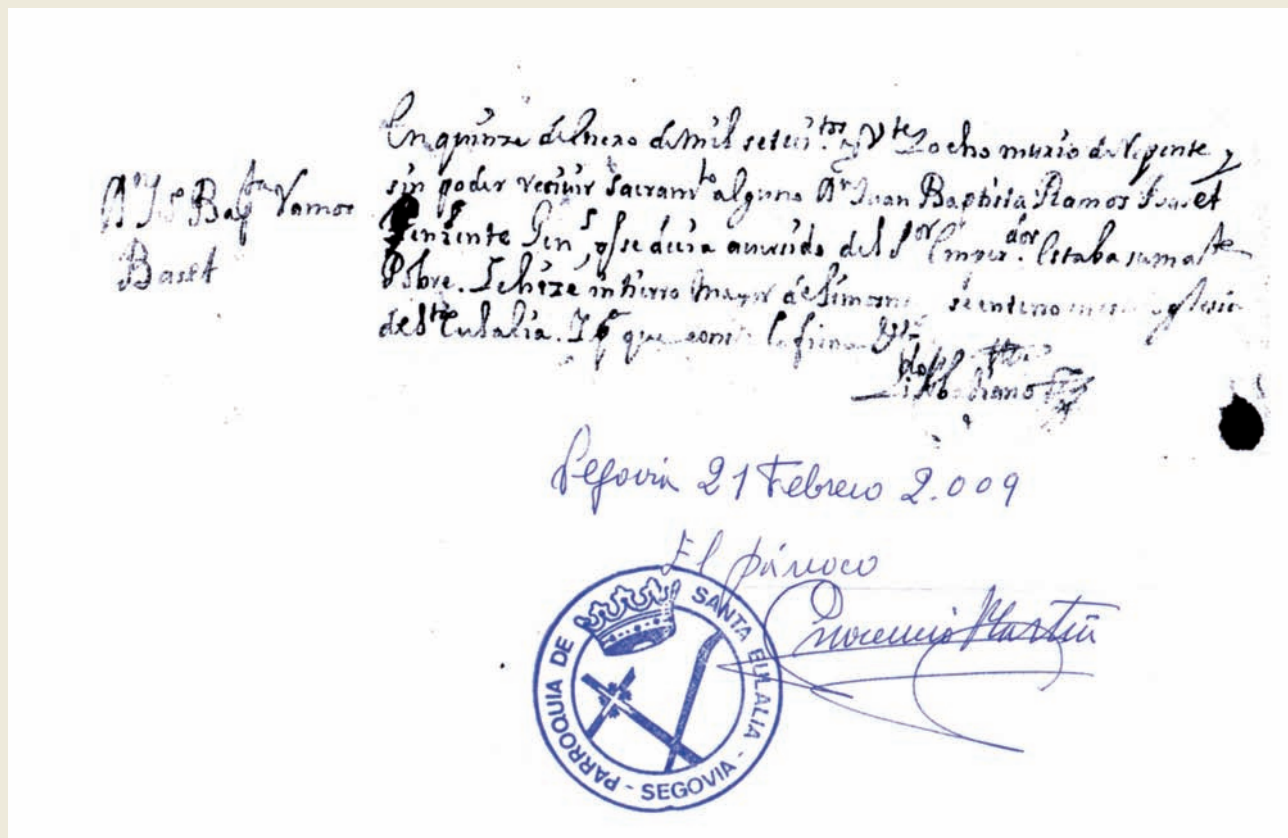 Dn Jn Bapta Ramos
Baset
En quinze de Enero de mil setecitos y Vte Y ocho murio de repente y
sin poder reciuir Sacramto alguno Dn Juan Baptista Ramos Baset
Theniente Genl, q se decia auia sido del Sor Emperador. Estaba sumamte
Pobre. Se hize intierro mayor de limosna, se enterro en esta Iglesia
de Sta Eulalia. Y pa que conste lo firme
Segovia 21 Febrero 2.009
El párroco
Inocencio Martín
PARROQUIA DE SANTA EULALIA - SEGOVIA -